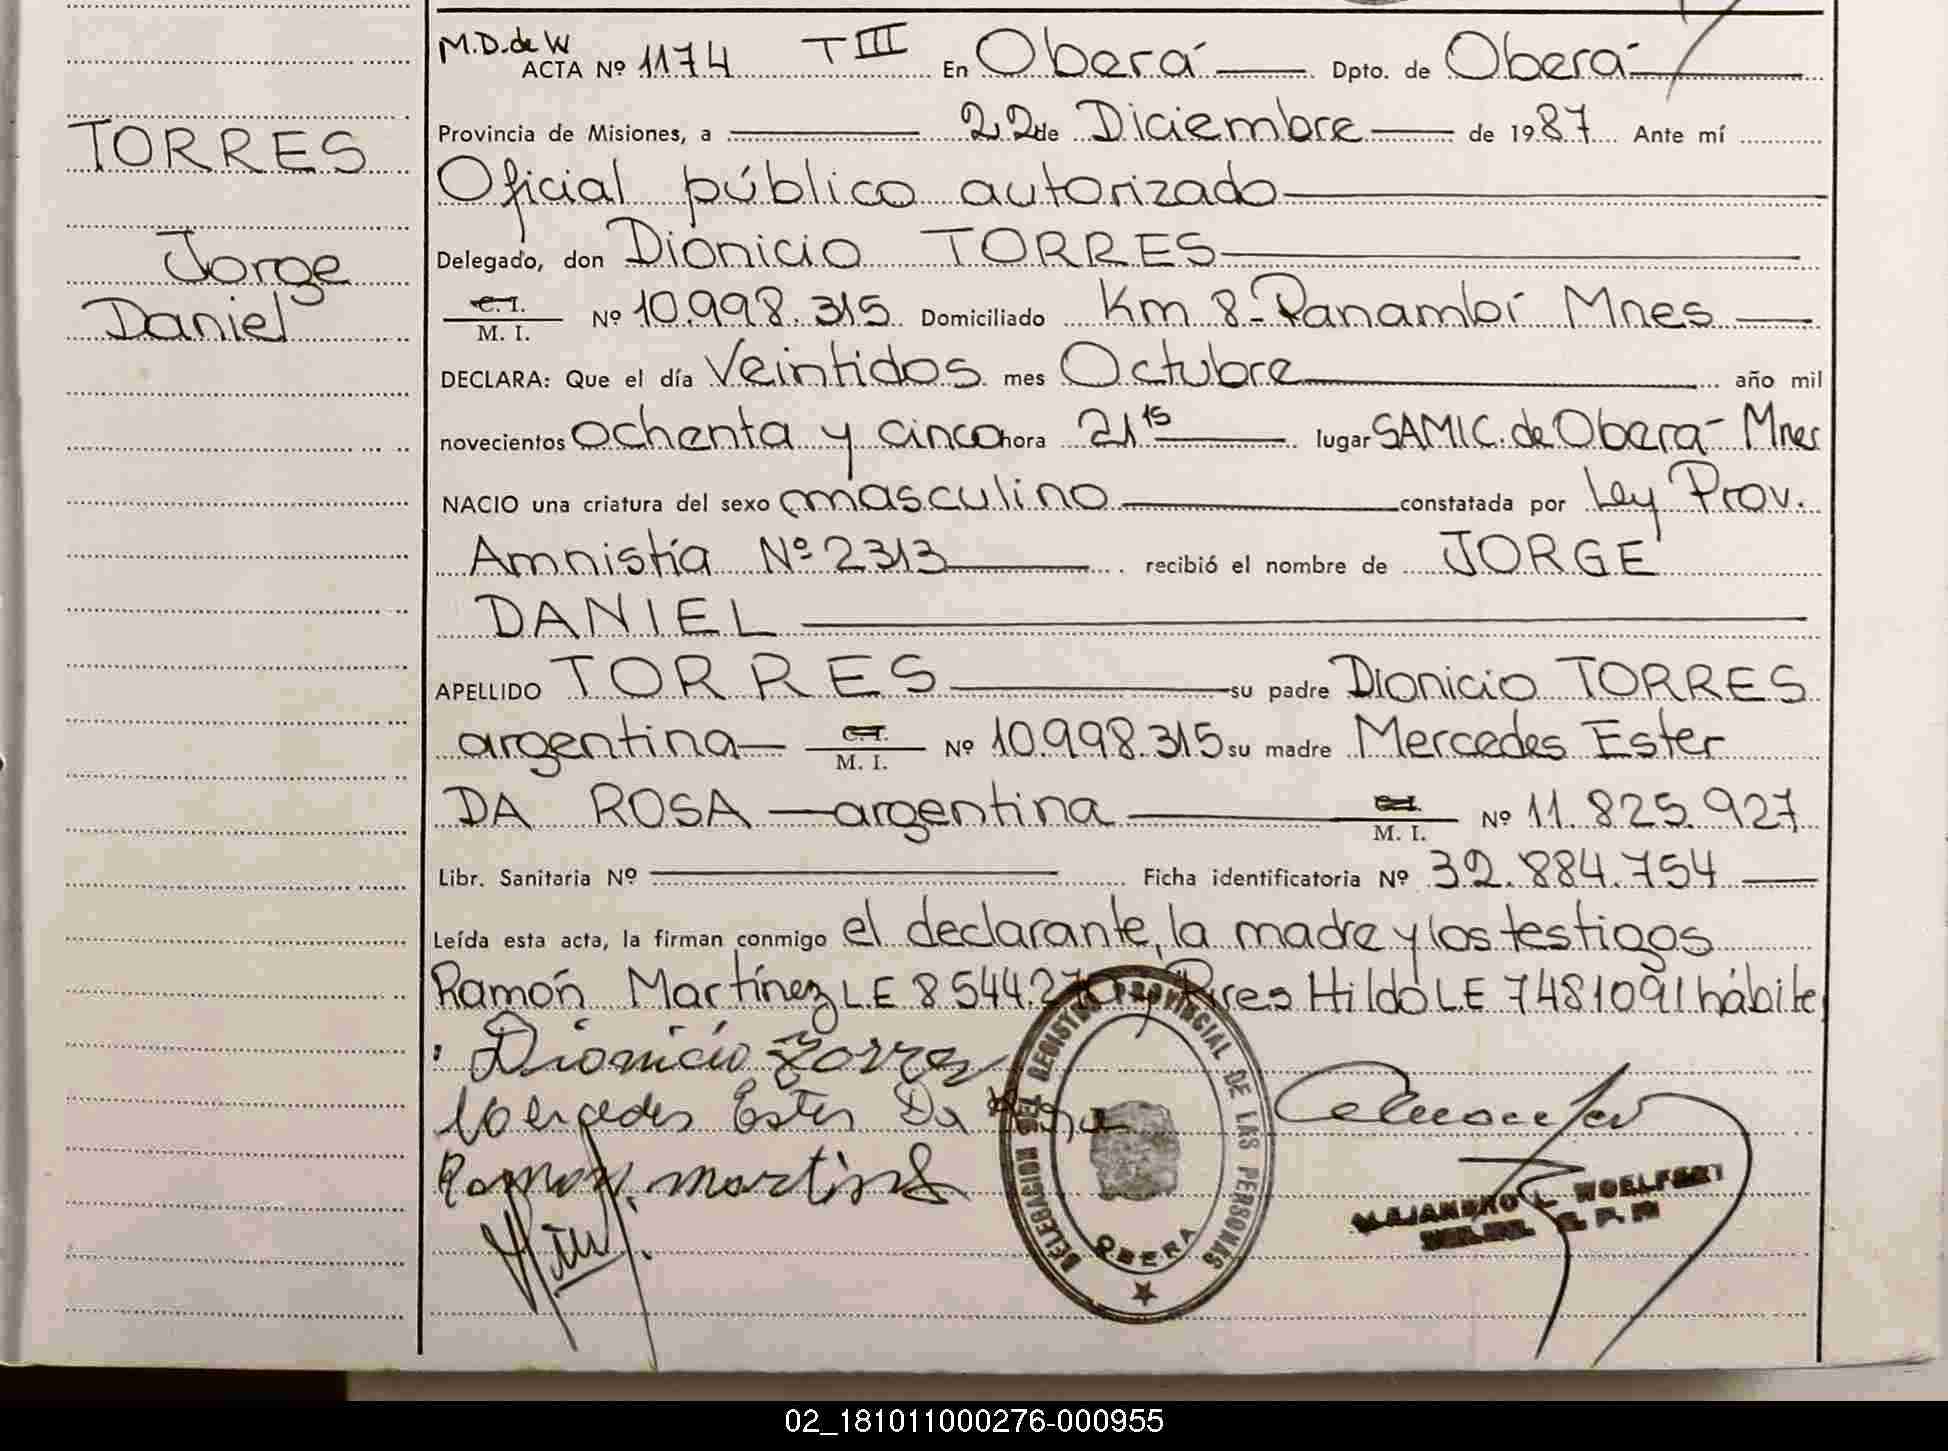 M.D.de W
ACTA Nº 1174 T III En Oberá Dpto. de Oberá
Provincia de Misiones, a 22 de Diciembre de 1987 Ante mí
Oficial público autorizado
Delegado, don Dionicio TORRES
C.I. M. I. Nº 10.998.315 Domiciliado Km 8-Panambí Mnes
DECLARA: Que el día Veintidos mes Octubre año mil
novecientos ochenta y cinco hora 21 15 lugar SAMIC. de Oberá- Mnes
NACIO una criatura del sexo masculino constatada por Ley Prov.
Amnistía Nº 2313 recibió el nombre de JORGE
DANIEL
APELLIDO TORRES su padre Dionicio TORRES
argentina C.I. M. I. Nº 10.998.315 su madre Mercedes Ester
DA ROSA argentina C.I. M. I. Nº 11.825.927
Libr. Sanitaria Nº Ficha identificatoria Nº 32.884.754
Leída esta acta, la firman conmigo el declarante, la madre y los testigos
Ramón Martínez L.E 8544.270 y Pires Hildo LE 7481091 hábiles
Dionicio Torres
Mercedes Ester Da Rosa
Ramon martines
TORRES
Jorge
Daniel
DELEGACION DEL REGISTRO PROVINCIAL DE LAS PERSONAS
OBERA
ALEJANDRO L. WOELFERT
02_181011000276-000955